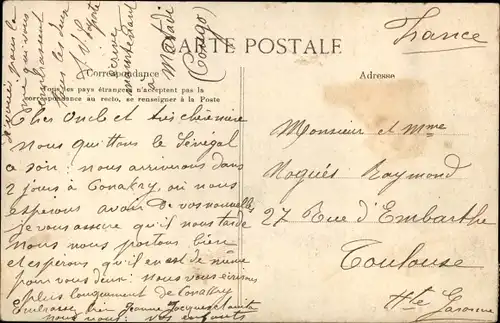 CARTE POSTALE
Correspondance
Tous les pays étrangers n'acceptent pas la
correspondance au recto, se renseigner à la Poste
Cher Oncle et très chère
nous quittons le Sénégal
ce soir : nous arriverons dans
2 jours à Conakry, où nous
espérons avoir de vos nouvelles
je vous assure qu'il nous tarde
nous nous portons bien
et espérons qu'il en est de même
pour vous deux : nous vous écrirons
plus longuement de Conakry
Embrassez bien Jeanne Jacques
nous nous : vos enfants
embrassent
tous les deux
écrire
maintenant
à
Matadi
(Congo)
France
Adresse
Monsieur et Mme
Noguès Raymond
27 Rue d'Embarthe
Toulouse
Hte Garonne